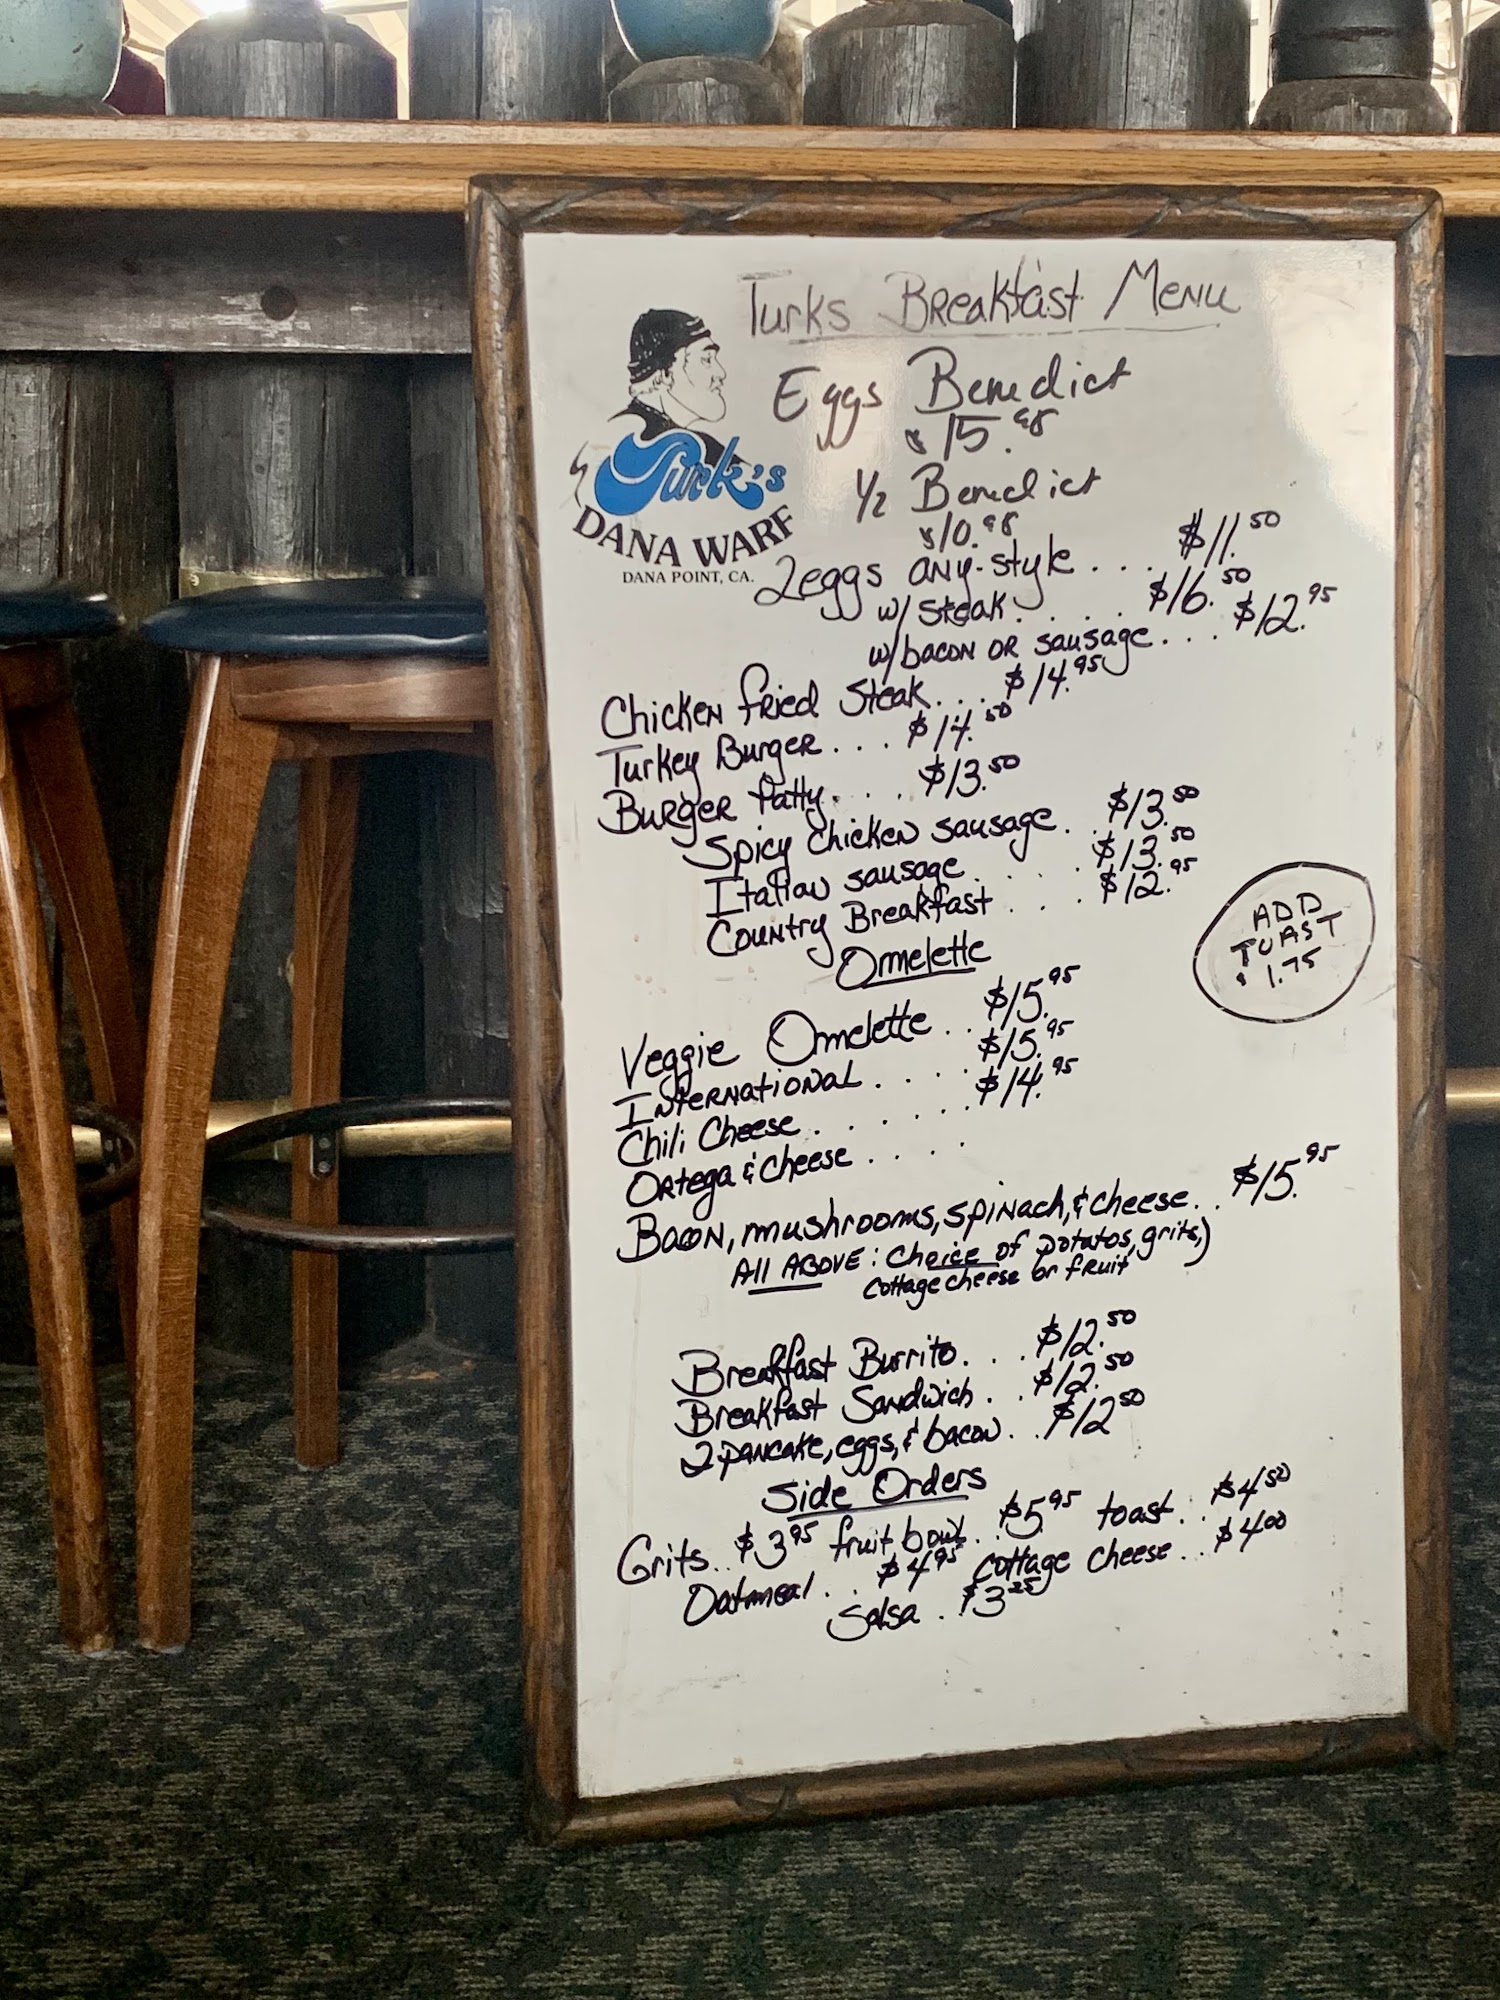 Turks Breakfast Menu
Eggs Benedict
$15.98
1/2 Benedict
$10.98
Turk's
DANA WARF
DANA POINT, CA.
2 eggs any-style . . . $11.50
w/ steak . . . . $16.50
w/ bacon or sausage . . . $12.95
Chicken fried Steak . . . $14.95
Turkey Burger . . . $14.50
Burger Patty . . . . $13.50
Spicy chicken sausage . . $13.50
Italian sausage . . . . $13.50
Country Breakfast . . . $12.95
ADD
TOAST
$1.75
Ommelette
Veggie Ommelette . . $15.95
International . . . . $15.95
Chili Cheese . . . . . . $14.95
Ortega & cheese . . . .
Bacon, mushrooms, spinach, & cheese . . $15.95
All ABOVE: Choice of potatos, grits,)
cottage cheese or fruit
Breakfast Burrito . . . $12.50
Breakfast Sandwich . . $12.50
2 pancake, eggs, & bacon . . $12.50
Side Orders
Grits . . $3.95 fruit bowl . . $5.95 toast . . $4.50
Oatmeal . . $4.95 cottage cheese . . $4.00
Salsa . $3.25